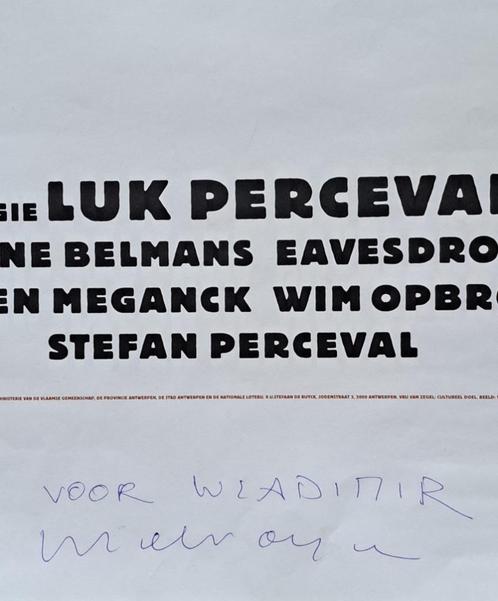 SIE LUK PERCEVAL
NE BELMANS EAVESDRO
EN MEGANCK WIM OPBR
STEFAN PERCEVAL
MINISTERIE VAN DE VLAAMSE GEMEENSCHAP, DE PROVINCIE ANTWERPEN, DE STAD ANTWERPEN EN DE NATIONALE LOTERIJ. V.U. STEFAAN DE RUYCK, JODENSTRAAT 3, 2000 ANTWERPEN. VRIJ VAN ZEGEL; CULTUREEL DOEL. BEELD:
VOOR WLADIMIR